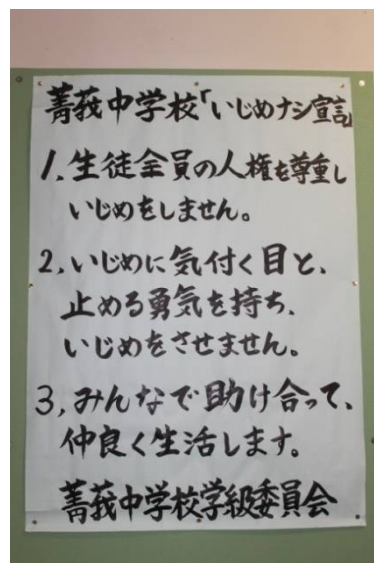 菁莪中学校「いじめナシ宣言」
1.生徒全員の人権を尊重し
いじめをしません。
2,いじめに気付く目と、
止める勇気を持ち、
いじめをさせません。
3,みんなで助け合って、
仲良く生活します。
菁莪中学校学級委員会